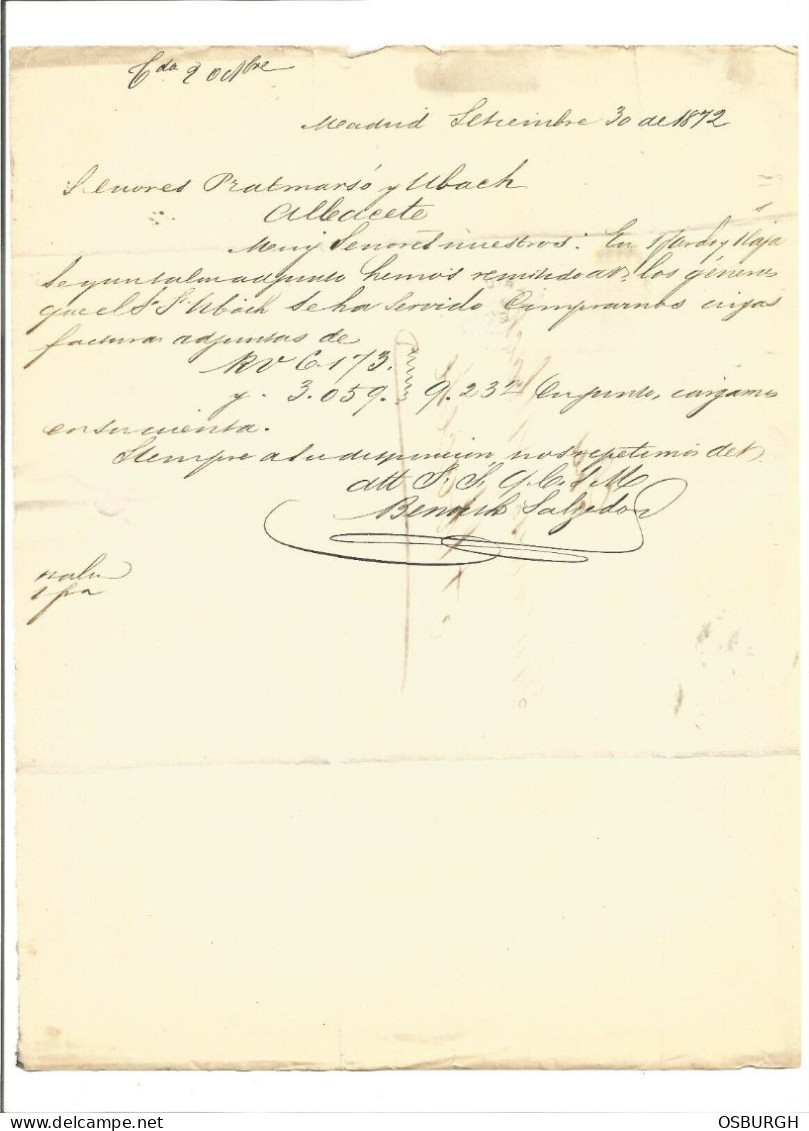 Cda 2 octbre
Madrid Setiembre 30 de 1872
Señores Pratmarsó y Ubach
Albacete
Muy Señores nuestros: En
segun talon adjunto hemos remitido a Vs. los géneros
que el Sr. Sr. Ubach se ha servido comprarnos cuyas
facturas adjuntas de
RV 6.173.
y. 3.059. 9.232 en junto, cargamos
en su cuenta.
Siempre a su disposicion, nos repetimos de V.
att S. S. q. B. S. M.
Benach Salzedo
OSBURGH